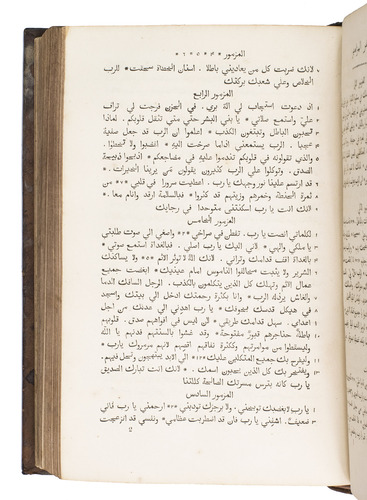 المزمور * ٣ * ٥ * ٦ *
لانك ضربت كل من يعاديني باطلا. اسنان الخطاة سحقت * للرب
الخلاص وعلي شعبك بركتك
المزمور الرابع
اذ دعوت استجاب لي الله بري. في الحزن فرجت لي تراف
علي واستمع صلاتي * يا بني البشر حتي متي ثقل قلوبكم. لماذا
تحبون الباطل وتبتغون الكذب * اعلموا ان الرب قد جعل صفيه
عجيبا. الرب يستمعني اذا ما صرخت اليه * اغضبوا ولا تخطوا.
والذي تقولونه في قلوبكم تندموا عليه في مضاجعكم * اذبحوا ذبيحة
الصدق. وتوكلوا علي الرب كثيرون يقولون من يرينا الخيرات *
قد ارتسم علينا نور وجهك يا رب. اعطيت سرورا في قلبي * من
ثمرة الحنطة وخمرهم وزيتهم قد كثروا * فبالسلامة ارقد وانام معا *
لانك انت يا رب اسكنتني متوحدا في رجايك
المزمور الخامس
لكلماتي انصت يا رب. تفطن في صراخي * واصغي الي صوت طلبتي
يا ملكي والهي * لاني اليك يا رب اصلي. فبالغداة استمع صوتي *
بالغداة اقف قدامك وتراني. لانك الله لا توثر الاثم * ولا يساكنك
الشرير ولا يثبت مخالفوا الناموس امام عينيك * ابغضت جميع
عمال الاثم وتهلك كل الذين يتكلمون بالكذب. الرجل السافك الدما
والغاش يرذله الرب * وانا بكثرة رحمتك ادخل الي بيتك واسجد
في هيكل قدسك بخوفك * يا رب اهدني الي عدلك من اجل
اعداي. سهل قدامك طريقي * لان ليس في افواههم صدق. قلوبهم
باطلة حناجرهم قبور مفتوحة * وقد غشوا بالسنتهم فدنهم يا الله
وليسقطوا من موامرتهم وككثرة نفاقهم اقصهم لانهم مرمروك يا رب *
وليفرح بك جميع المتكلين عليك * الي الابد يبتهجون وتحل فيهم.
ويفتخر بك كل الذين يحبون اسمك * لانك انت تبارك الصديق
يا رب كانه بترس مسرتك الصالحة كللتنا
المزمور السادس
يا رب لا بغضبك توبخني. ولا برجزك تودبني * ارحمني يا رب فاني
ضعيف. اشفني يا رب فان قد اضطربت عظامي * ونفسي قد انزعجت